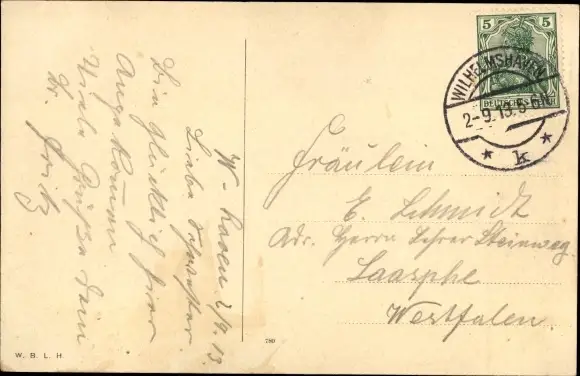 W-haven 2/9. 13.
Liebe Schwester
Bin glücklich hier
Angekommen
Viele Grüße Dein
Br. Fritz
5 5
WILHELMSHAVEN
2-9.13.5-6N
* k *
Fräulein
E. Schmidt
Adr. Herrn Lehrer Steinweg
Laasphe
Westfalen.
W. B. L. H.
780